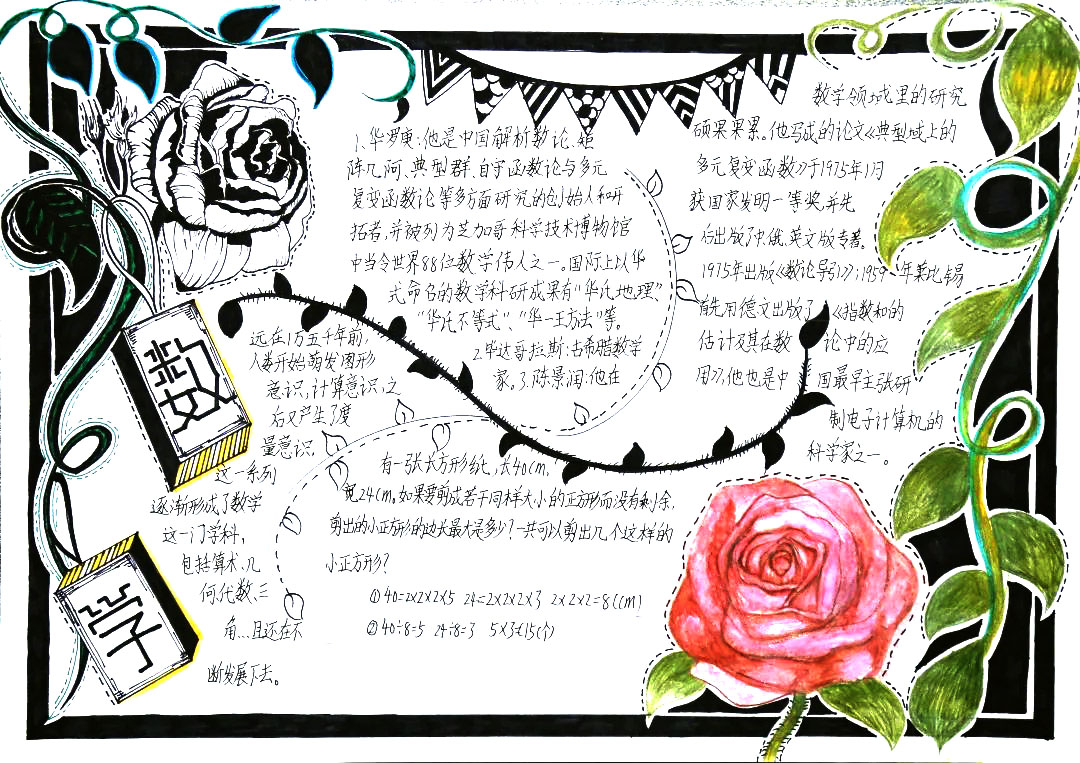 数学
1.华罗庚:他是中国解析数论、矩
阵几何、典型群、自守函数论与多元
复变函数论等多方面研究的创始人和开
拓者,并被列为芝加哥科学技术博物馆
中当今世界88位数学伟人之一。国际上以华
式命名的数学科研成果有“华氏地理”、
“华氏不等式”、“华一王方法”等。
2.毕达哥拉斯:古希腊数学
家。3.陈景润:他在
数学领域里的研究
硕果累累。他写成的论文《典型域上的
多元复变函数》于1975年1月
获国家发明一等奖,并先
后出版了中,俄,英文版专著。
1975年出版《数论导引》;1959年莱比锡
首先用德文出版了《指数和的
估计及其在数论中的应
用》,他也是中国最早主张研
制电子计算机的
科学家之一。
远在1万五千年前,
人类开始萌发图形
意识,计算意识,之
后又产生了度
量意识,
这一系列
逐渐形成了数学
这一门学科,
包括算术、几
何、代数、三
角...且还在不
断发展下去。
有一张长方形纸,长40cm,
宽24cm,如果要剪成若干同样大小的正方形而没有剩余,
剪出的小正方形的边长最大是多少?一共可以剪出几个这样的
小正方形?
①40=2×2×2×5 24=2×2×2×3 2×2×2=8(cm)
②40÷8=5 24÷8=3 5×3=15(个)